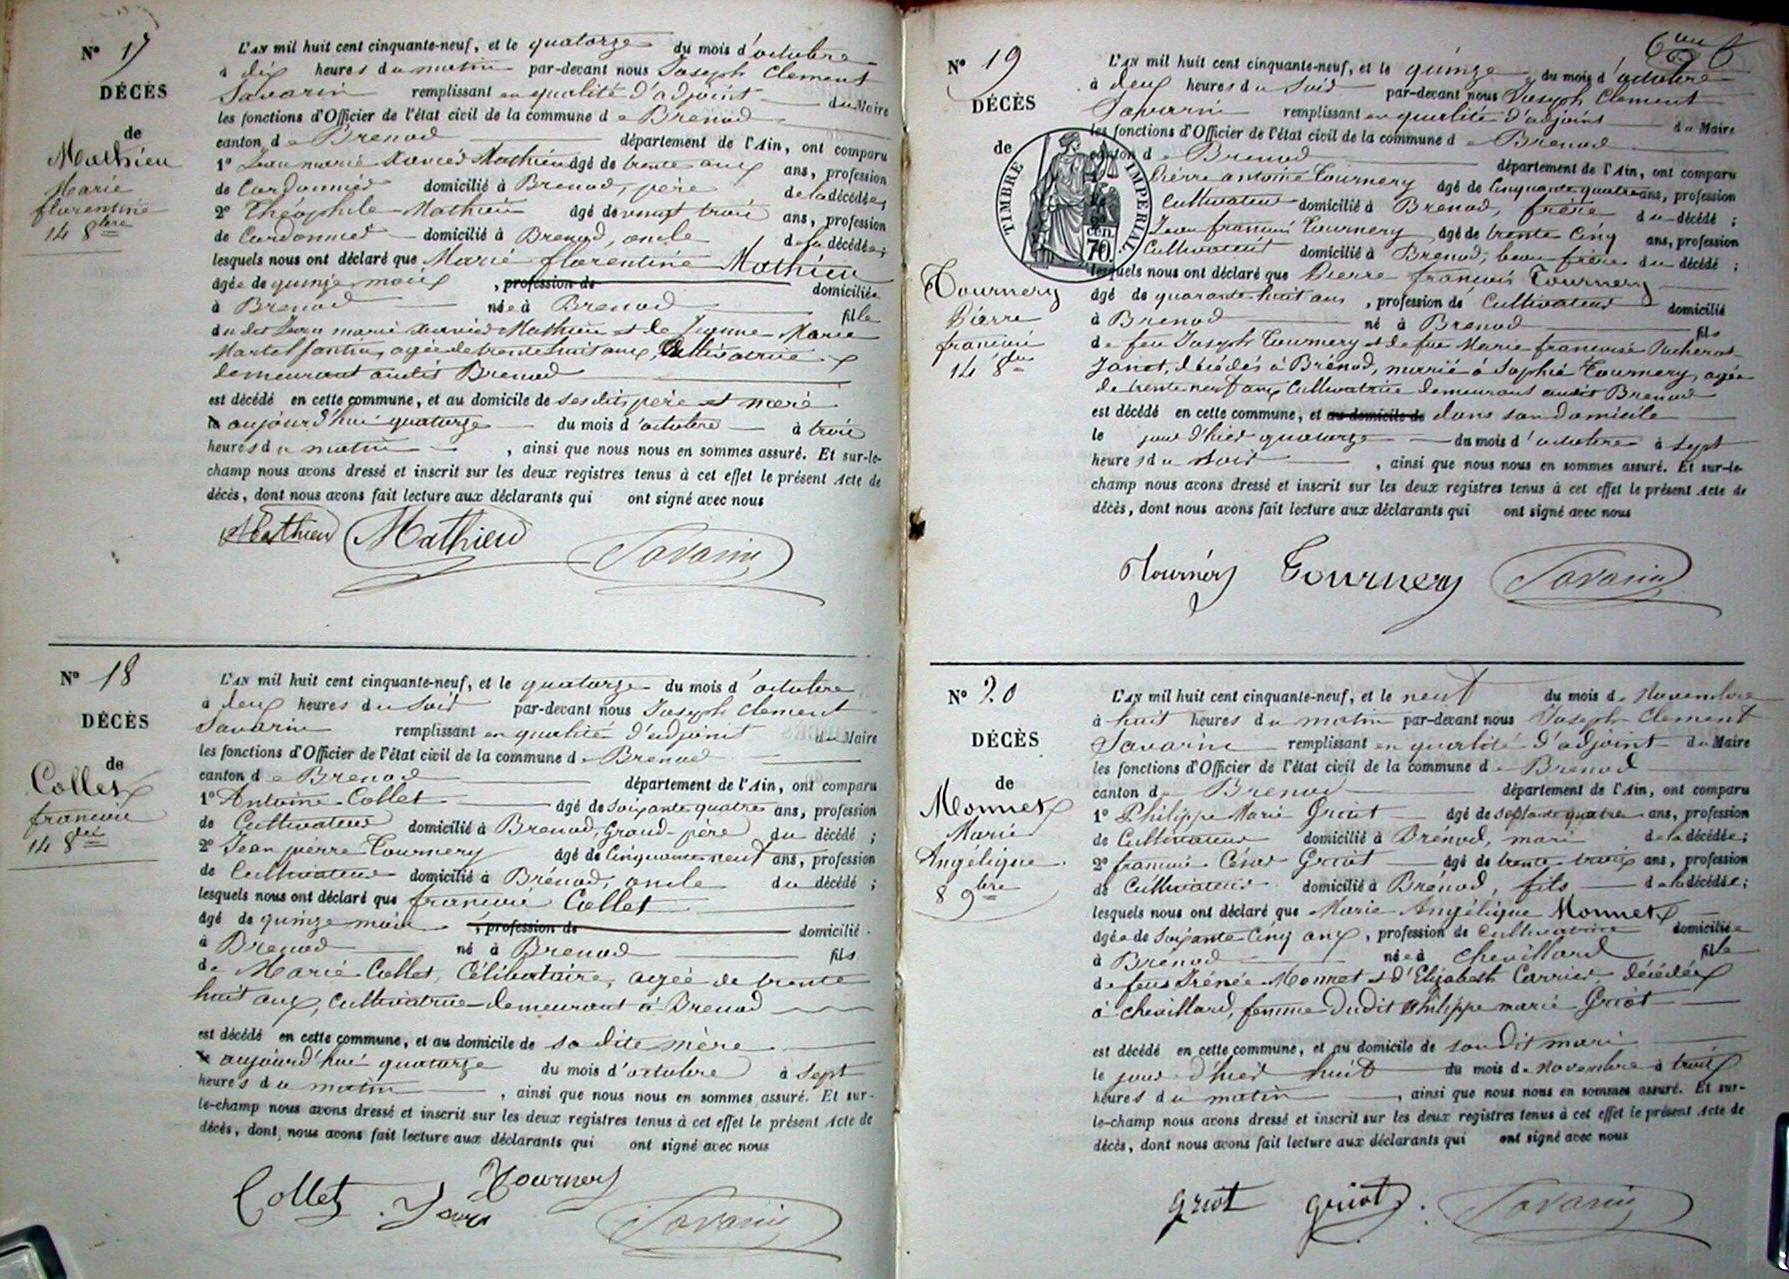 N° 17
DÉCÈS
de
Mathieu
Marie
florentine
14 8bre
L'AN mil huit cent cinquante-neuf, et le quatorze du mois d'octobre
à dix heures du matin par-devant nous Joseph Clement
Savarin remplissant en qualité d'adjoint du Maire
les fonctions d'Officier de l'état civil de la commune de Brenod
canton de Brenod département de l'Ain, ont comparu
1° Jean marie Mathieu âgé de trente ans, profession
de Cordonnier domicilié à Brenod, père de la décédée,
2° Théophile Mathieu âgé de vingt trois ans, profession
de Cordonnier domicilié à Brenod, oncle de la décédée;
lesquels nous ont déclaré que Marie florentine Mathieu
âgée de quinze mois, profession de domiciliée
à Brenod née à Brenod fille
du dit Jean marie Mathieu et de Jeanne Marie
Martel fantin, agée de trente huit ans, Cultivatrice
demeurant audit Brenod
est décédé en cette commune, et au domicile de ses dits père et mère
aujourd'hui quatorze du mois d'octobre à trois
heures du matin, ainsi que nous nous en sommes assuré. Et sur-le-
champ nous avons dressé et inscrit sur les deux registres tenus à cet effet le présent Acte de
décès, dont nous avons fait lecture aux déclarants qui ont signé avec nous
Mathieu Mathieu Savarin
N° 18
DÉCÈS
de
Collet
francois
14 8bre
L'AN mil huit cent cinquante-neuf, et le quatorze du mois d'octobre
à deux heures du soir par-devant nous Joseph Clement
Savarin remplissant en qualité d'adjoint du Maire
les fonctions d'Officier de l'état civil de la commune de Brenod
canton de Brenod département de l'Ain, ont comparu
1° Antoine Collet âgé de soixante quatre ans, profession
de Cultivateur domicilié à Brenod, Grand-père du décédé;
2° Jean pierre Tournery âgé de Cinquante neuf ans, profession
de Cultivateur domicilié à Brénod, oncle du décédé;
lesquels nous ont déclaré que francois Collet
âgé de quinze mois, profession de domicilié
à Brenod né à Brenod fils
de Marie Collet, Célibataire, agée de trente
huit ans, Cultivatrice demeurant à Brenod
est décédé en cette commune, et au domicile de sa dite mère
le aujourd'hui quatorze du mois d'octobre à sept
heures du matin, ainsi que nous nous en sommes assuré. Et sur-
le-champ nous avons dressé et inscrit sur les deux registres tenus à cet effet le présent Acte de
décès, dont nous avons fait lecture aux déclarants qui ont signé avec nous
Collet Tournery Savarin
N° 19
DÉCÈS
de
TIMBRE IMPERIAL
70.
Tournery
Pierre
francois
14 8bre
L'AN mil huit cent cinquante-neuf, et le quinze du mois d'octobre
à deux heures du soir par-devant nous Joseph Clement
Savarin remplissant en qualité d'adjoint du Maire
les fonctions d'Officier de l'état civil de la commune de Brenod
canton de Brenod département de l'Ain, ont comparu
Pierre antoine Tournery âgé de Cinquante quatre ans, profession
Cultivateur domicilié à Brenod, frère du décédé;
Jean francois Tournery âgé de trente Cinq ans, profession
Cultivateur domicilié à Brenod, beau frère du décédé;
lesquels nous ont déclaré que Pierre francois Tournery
âgé de quarante huit ans, profession de Cultivateur domicilié
à Brenod né à Brenod fils
de feu Joseph Tournery et de feue Marie francoise
Janot, décédés à Brénod, marié à Sophie Tournery, agée
de trente neuf ans Cultivatrice demeurant audit Brenod
est décédé en cette commune, et au domicile de dans son domicile
le jour d'hier quatorze du mois d'octobre à sept
heures du soir, ainsi que nous nous en sommes assuré. Et sur-le-
champ nous avons dressé et inscrit sur les deux registres tenus à cet effet le présent Acte de
décès, dont nous avons fait lecture aux déclarants qui ont signé avec nous
Tournery Tournery Savarin
N° 20
DÉCÈS
de
Monnet
Marie
Angélique
8 9bre
L'AN mil huit cent cinquante-neuf, et le neuf du mois de Novembre
à huit heures du matin par-devant nous Joseph Clement
Savarin remplissant en qualité d'adjoint du Maire
les fonctions d'Officier de l'état civil de la commune de Brenod
canton de Brenod département de l'Ain, ont comparu
1° Philippe Marie Griot âgé de septante quatre ans, profession
de Cultivateur domicilié à Brénod, mari de la décédée;
2° francois César Griot âgé de trente trois ans, profession
de Cultivateur domicilié à Brénod, fils de la décédée;
lesquels nous ont déclaré que Marie Angélique Monnet
âgée de soixante Cinq ans, profession de Cultivatrice domiciliée
à Brenod née à Chevillard fille
de feus Irénée Monnet et d'Elizabeth Carrier décédés
à Chevillard, femme dudit Philippe marie Griot
est décédé en cette commune, et au domicile de son dit mari
le jour d'hier huit du mois de novembre à trois
heures du matin, ainsi que nous nous en sommes assuré. Et sur-
le-champ nous avons dressé et inscrit sur les deux registres tenus à cet effet le présent Acte de
décès, dont nous avons fait lecture aux déclarants qui ont signé avec nous
Griot Griot Savarin